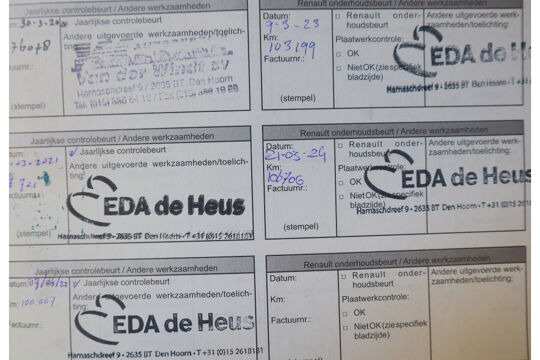 Jaarlijkse controlebeurt / Andere werkzaamheden
30-3-20
Andere uitgevoerde werkzaamheden/toelich-
ting:
76078
Van der Windt bv
Harnaschdreef 9 / 2635 BT Den Hoorn
Factuurnr.:
(stempel)
Renault onderhoudsbeurt / Andere werkzaamheden
Datum:
9-3-23
Km:
103199
Factuurnr.:
(stempel)
□ Renault onder-
houdsbeurt
Plaatwerkcontrole:
□ OK
□ Niet OK (zie specifiek
bladzijde)
Andere uitgevoerde werk-
zaamheden/toelichting:
EDA de Heus
Harnaschdreef 9 - 2635 BT Den Hoorn
Jaarlijkse controlebeurt / Andere werkzaamheden
03-2021
Andere uitgevoerde werkzaamheden/toelich-
ting:
721
(stempel)
EDA de Heus
Harnaschdreef 9 - 2635 BT Den Hoorn - T +31 (0)15 2618181
Renault onderhoudsbeurt / Andere werkzaamheden
Datum:
21-03-24
Km:
Factuurnr.:
(stempel)
□ Renault onder-
houdsbeurt
Plaatwerkcontrole:
□ OK
□ Niet OK (zie specifiek
bladzijde)
Andere uitgevoerde werk-
zaamheden/toelichting:
EDA de Heus
Harnaschdreef 9 - 2635 BT Den Hoorn - T +31 (0)15
Jaarlijkse controlebeurt / Andere werkzaamheden
Andere uitgevoerde werkzaamheden/toelich-
ting:
100 007
EDA de Heus
Harnaschdreef 9 - 2635 BT Den Hoorn - T +31 (0)15 2618181
Renault onderhoudsbeurt / Andere werkzaamheden
Datum:
Km:
Factuurnr.:
□ Renault onder-
houdsbeurt
Plaatwerkcontrole:
□ OK
□ Niet OK (zie specifiek
bladzijde)
Andere uitgevoerde werk-
zaamheden/toelichting: